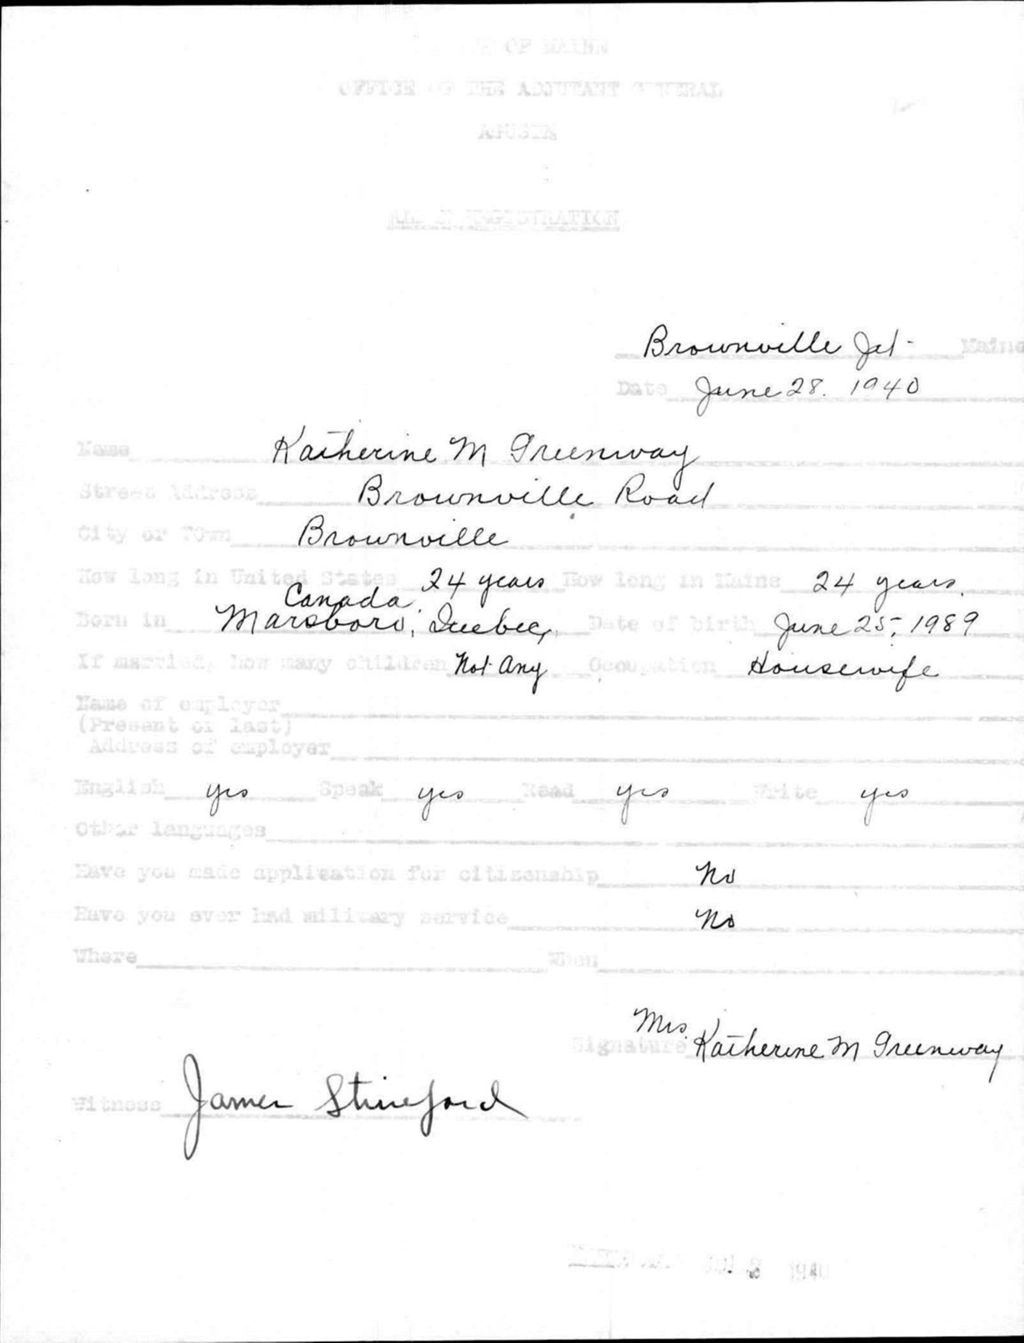 STATE OF MAINE
OFFICE OF THE ADJUTANT GENERAL
AUGUSTA
ALIEN REGISTRATION
Brownville Jct. Maine
Date June 28. 1940
Name Katherine M Greenway
Street Address Brownville Road
City or Town Brownville
How long in United States 24 years How long in Maine 24 years.
Canada,
Born in Marsboro, Quebec, Date of birth June 25, 1989
If married, how many children Not Any Occupation Housewife
Name of employer
(Present or last)
Address of employer
English yes Speak yes Read yes Write yes
Other languages
Have you made application for citizenship No
Have you ever had military service No
Where When
Signature Mrs. Katherine M Greenway
Witness James Stineford
1940